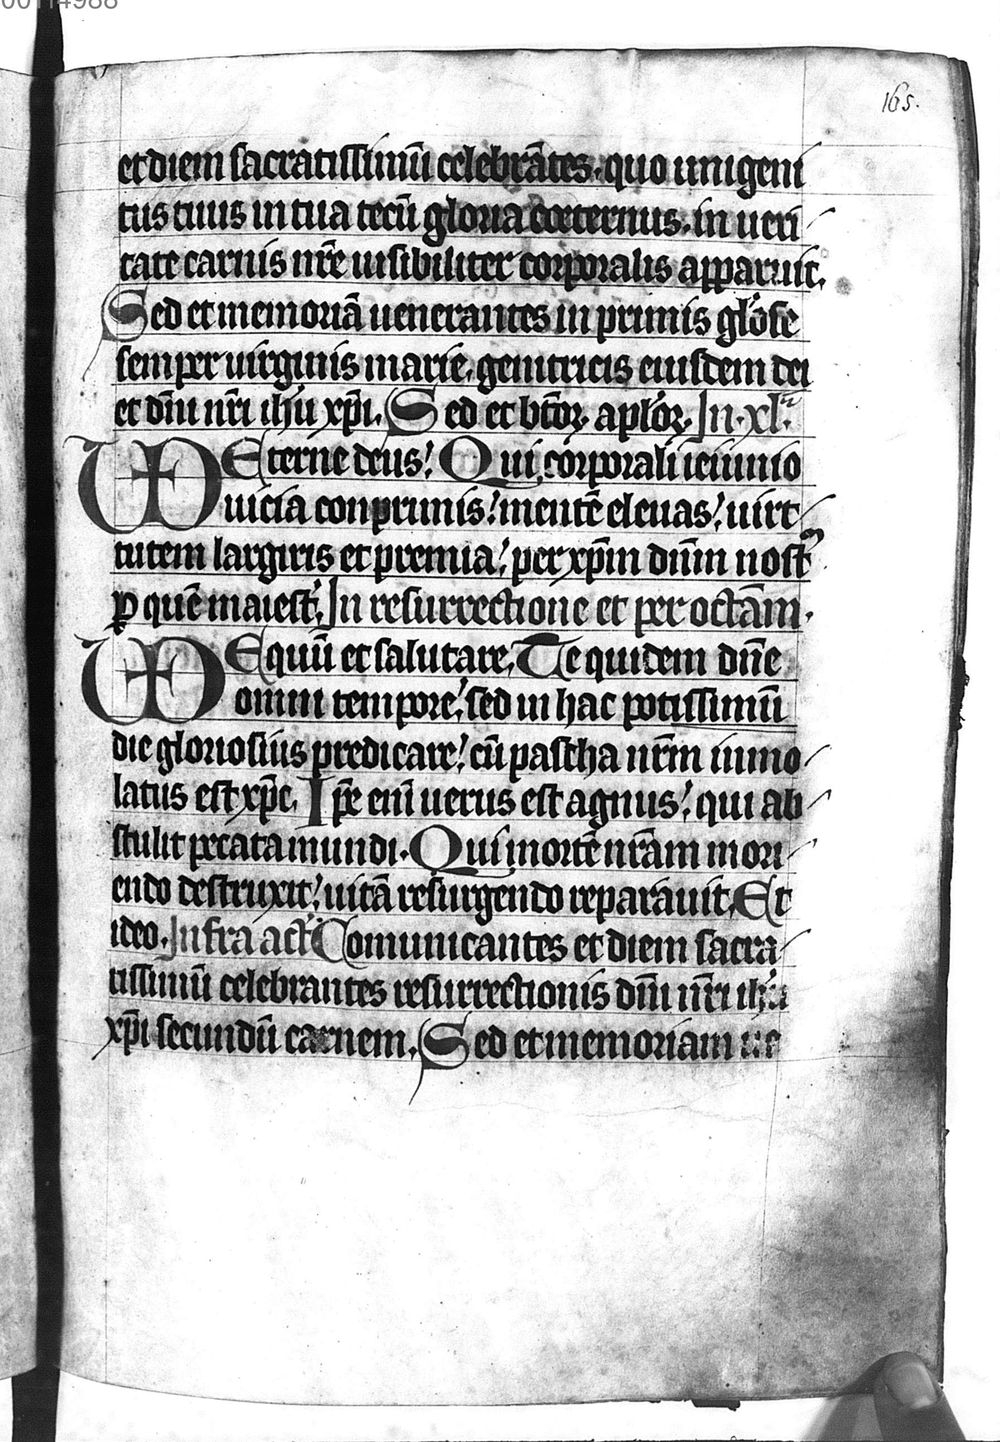 00114988
165.
et diem sacratissimū celebrātes. quo unigeni
tus tuus in tua tecū gloria coeternus. in ueri
tate carnis nr̄e uisibiliter corporalis apparuit.
Sed et memoriā uenerantes in primis gl'ose
semper uirginis marie. genitricis eiusdem dei
et dn̄i nr̄i ih̄u xp̄i. Sed et bt̄oꝝ apl'oꝝ. In .xl.
VD Eterne deus. Qui corporali ieiunio
uicia conprimis. mentē eleuas. uirt
tutem largiris et premia. per xp̄m dn̄m nost
ꝑ quē maiest. In resurrectione et per octām.
VD Equū et salutare. Te quidem dn̄e
omni tempore. sed in hac potissimū
die gloriosius predicare. cū pascha nr̄m immo
latus est xp̄c. Ip̄e enī uerus est agnus. qui ab
stulit peccata mundi. Qui mortē nr̄am mori
endo destruxit. uitā resurgendo reparauit. Et
ideo. Infra act Comunicantes et diem sacra
tissimū celebrantes resurrectionis dn̄i nr̄i ih̄u
xp̄i secundū carnem. Sed et memoriam ue